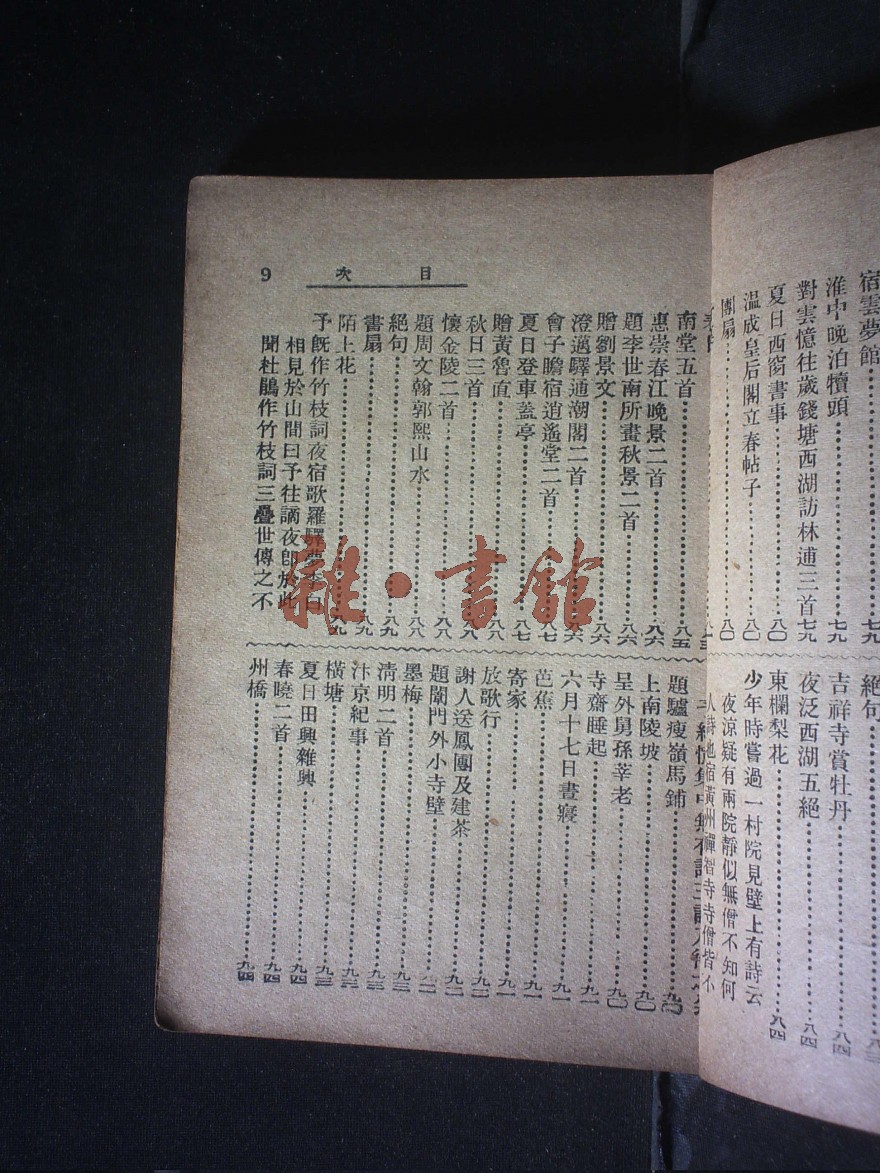 宿雲夢館 七九
淮中晚泊犢頭 七九
對雲憶往歲錢塘西湖訪林逋三首 七九
夏日西窗書事 八〇
温成皇后閣立春帖子 八〇
團扇 八〇
絕句
吉祥寺賞牡丹 八四
夜泛西湖五絕 八四
東欄梨花 八四
少年時嘗過一村院見壁上有詩云
夜涼疑有雨院靜似無僧不知何
人詩也宿黃州禪智寺寺僧皆不
目 次 9
南堂五首 八五
惠崇春江晚景二首 八六
題李世南所畫秋景二首 八六
贈劉景文 八六
澄邁驛通潮閣二首 八六
會子瞻宿逍遙堂二首 八七
夏日登車蓋亭 八七
贈黃魯直 八八
秋日三首 八八
懷金陵二首 八八
題周文翰郭熙山水 八八
絕句 八九
書扇 八九
陌上花 八九
予既作竹枝詞夜宿歌羅驛夢李白
相見於山間曰予往謫夜郎於此
聞杜鵑作竹枝詞三疊世傳之不
題驢瘦嶺馬鋪 九〇
上南陵坡 九〇
呈外舅孫莘老 九〇
寺齋睡起 九一
六月十七日晝寢 九一
芭蕉 九一
寄家 九一
放歌行 九二
謝人送鳳團及建茶 九二
題閶門外小寺壁 九二
墨梅 九三
清明二首 九三
汴京紀事 九三
橫塘 九三
夏日田興雜興 九四
春曉二首 九四
州橋 九四
雜·書館